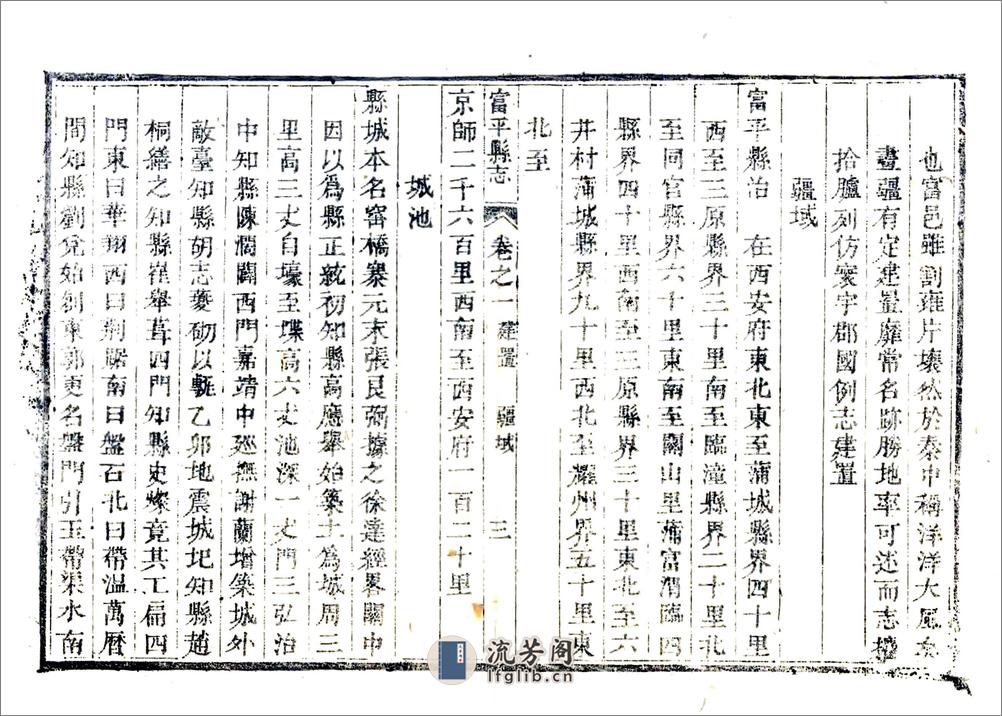 也富邑雖割雍片壤然於秦中稱洋洋大風矣
畫疆有定建置靡常名跡勝地率可述而志
拾臚列仿寰宇郡國例志建置
疆域
富平縣治 在西安府東北東至蒲城縣界四十里
西至三原縣界三十里南至臨潼縣界二十里北
至同官縣界六十里東南至關山里蒲富渭臨四
縣界四十里西南至三原縣界三十里東北至六
井村蒲城縣界九十里西北至耀州界五十里東
北至
富平縣志 卷之一 建置 疆域 三
京師二千六百里西南至西安府一百二十里
城池
縣城本名窰橋寨元末張良弼據之徐達經略關中
因以爲縣正統初知縣高應舉始築土爲城周三
里高三丈自壕至堞高六丈池深一丈門三弘治
中知縣陳潤闢西門嘉靖中廵撫謝蘭增築城外
敵臺知縣胡志夔砌以甎乙卯地震城圮知縣趙
桐繕之知縣崔舉葺四門知縣史燦竟其工扁四
門東曰華翔西曰荆踞南曰盤石北曰帶溫萬曆
間知縣劉兌始創東郭更名盤門引玉帶渠水南
流芳阁
lfglib.cn